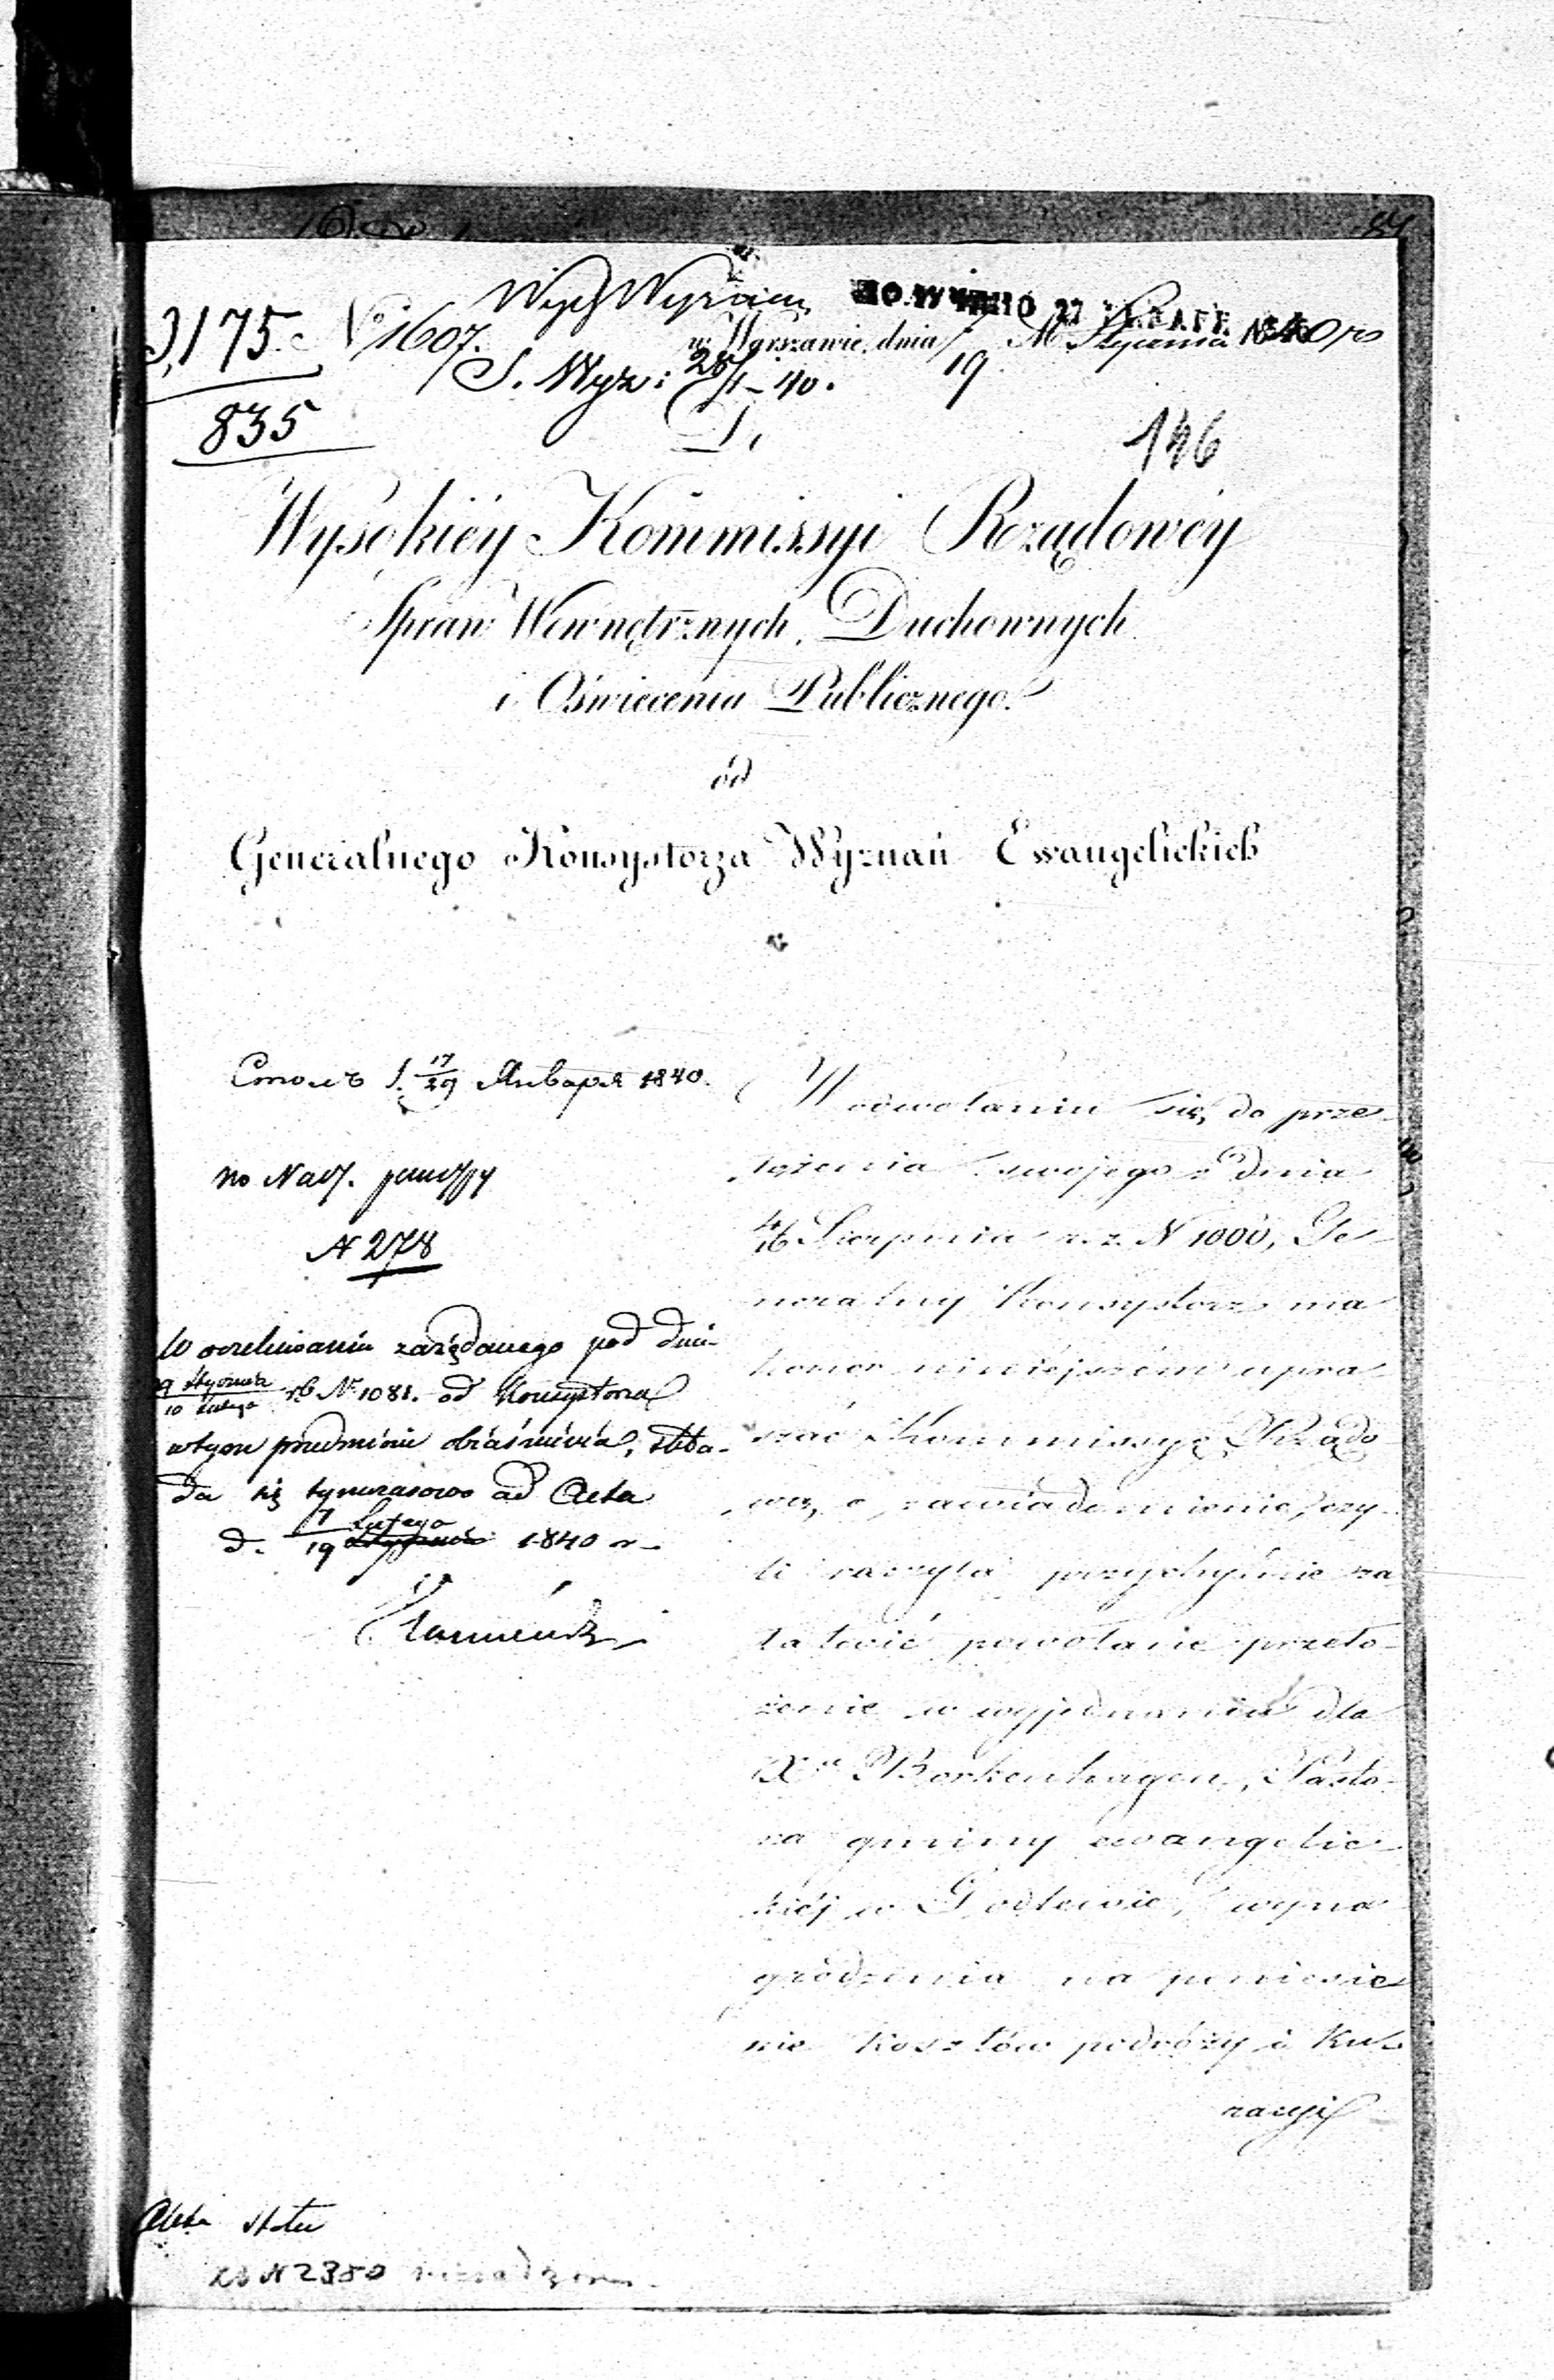 84
Wydz Wyznań
3,175. No 1607.
w Warszawie, dnia 7/19 M. Stycznia 1840 ro
S. Wyz: 28/1 - 40.
835
D,
146
Wysokiéy Kommissyi Rządowéy
Spraw Wewnętrznych, Duchownych
i Oświecenia Publicznego.
od
Generalnego Konsystorza Wyznań Ewangelickich
Столъ 1. 17/29 Января 1840.
по Над. реэстру
N 278
W oczekiwaniu zażądanego pod dniem
29 Stycznia/10 Lutego rb No 1081. od Konsystorza
w tym przedmiocie objaśnienia, skła-
da się tymczasowo ad Acta
d. 7/19 Lutego 1840 r
W odwołaniu się do prze-
łożenia swojego z dnia
4/16 Sierpnia r. z. N 1000, Ge-
neralny Konsystorz ma
honor niniéjszém upra
szać Kommissyę Rządo
wą, o zawiadomienie, czy-
li raczyła przychylnie za
łatwić powołane przeło-
żenie w wyjednaniu dla
Xa Borkenhagen, Pasto-
ra gminy ewangelic-
kiéj w Godlewie, wyna
grodzenia na poniesie
nie kosztów podróży i ku-
racyi
Acta
N 2380